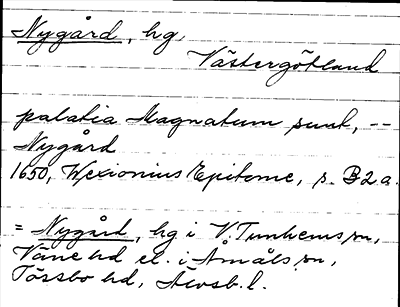 Nygård, hg,
Västergötland
palatia Magnatum sunt, --
Nygård
1650, Wexionius Epitome, s. B2a.
= Nygård, hg i V. Tunhems sn,
Väne hd el. i Åmåls sn,
Tössbo hd, Älvsb. l.